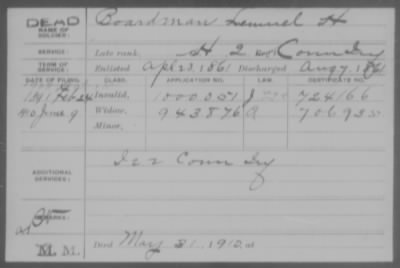 DEAD Boardman Lemuel H
NAME OF SOLDIER:
SERVICE: Late rank, H 2 Reg't Conn Inf
TERM OF SERVICE: Enlisted Apl 23, 1861 Discharged Aug 7, 1861
DATE OF FILING. CLASS. APPLICATION NO. LAW. CERTIFICATE NO.
1891 Feb 24 Invalid, 1000051 J 724166
1910 June 9 Widow, 943876 706935
Minor,
ADDITIONAL SERVICES: Conn Inf
REMARKS:
M. M. Died May 31, 1910, at